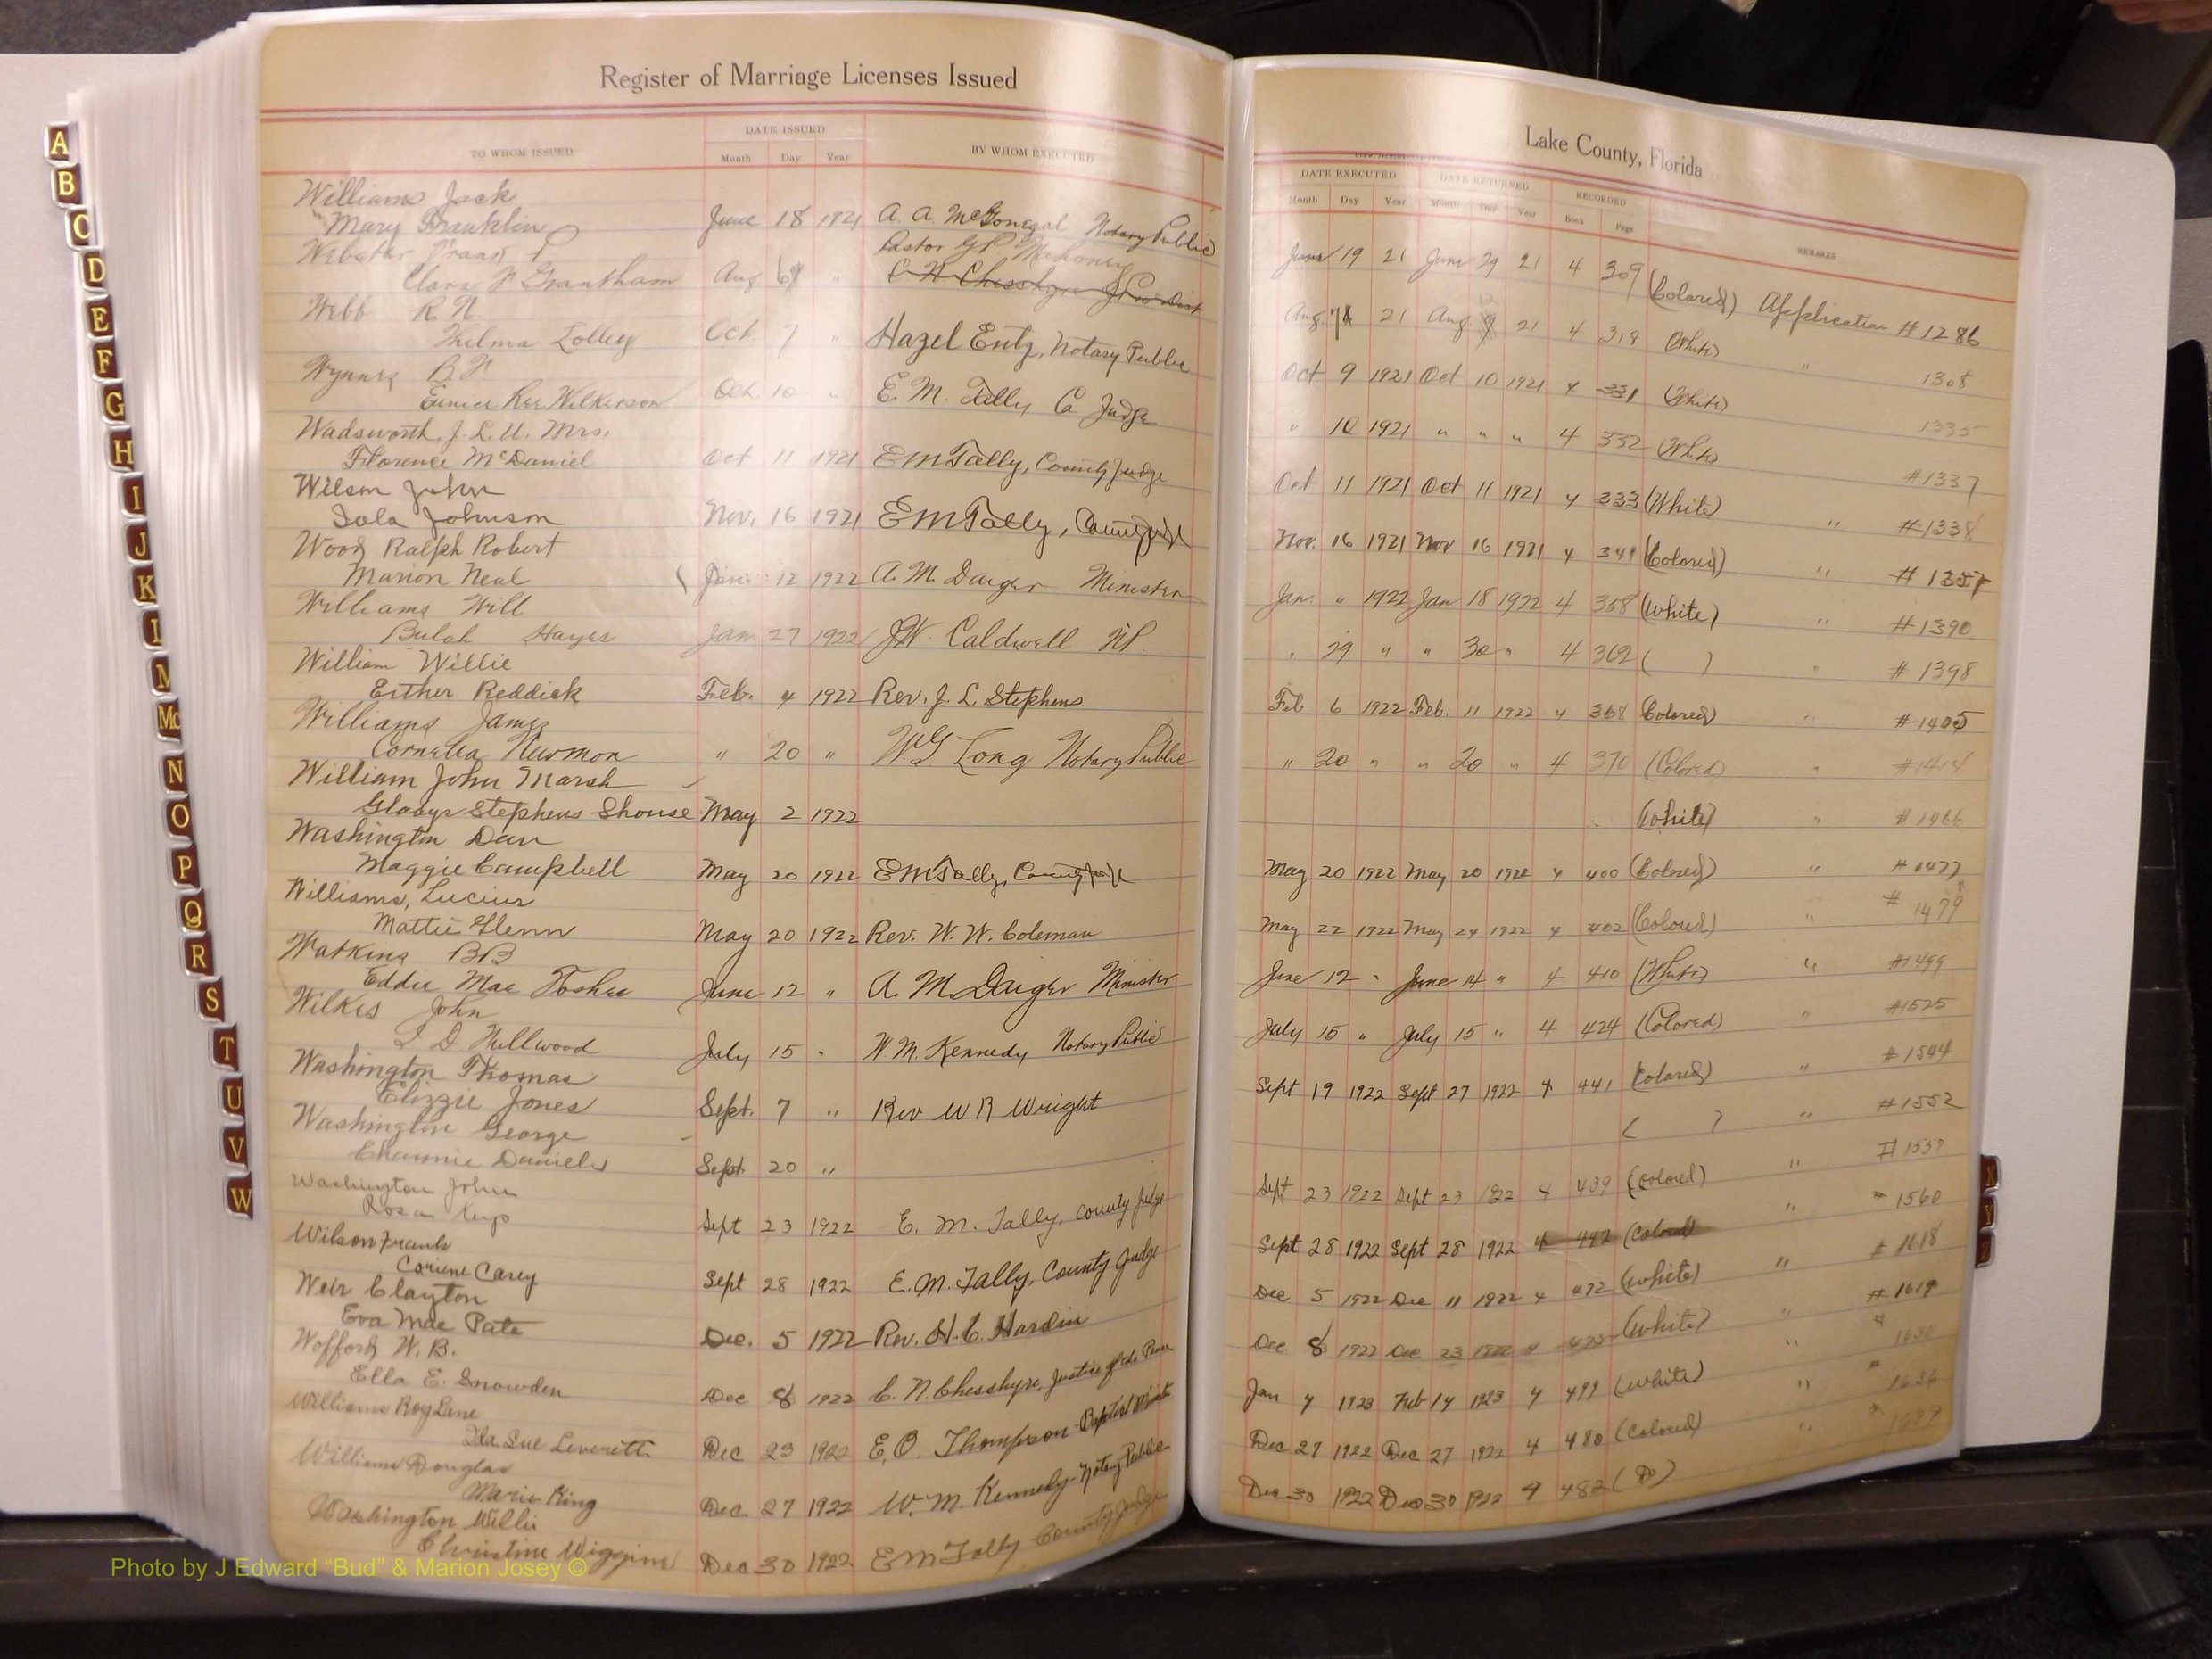 Register of Marriage Licenses Issued
Lake County, Florida
TO WHOM ISSUED
DATE ISSUED
Month Day Year
BY WHOM EXECUTED
DATE EXECUTED
Month Day Year
DATE RETURNED
Month Day Year
RECORDED
Book Page
REMARKS
Williams Jack
" Mary Franklin June 18 1921 A. A. McGonegal Notary Public June 19 21 June 29 21 4 309 (Colored) Application #1286
Webster
Clara Grantham Aug " Pastor G P Mahoney Aug. 21 Aug. 21 4 318 (White) " 1308
C. N. Chesshyre
Webb R. N.
Thelma Lolley Oct. 7 " Hazel Entz, Notary Public Oct 9 1921 Oct 10 1921 4 331 (White) 1335
Wynns B. F.
Eunice Ree Wilkerson Oct. 10 " E. M. Tally Co Judge " 10 1921 " " " 4 332 (White) #1337
Wadsworth, J. L. U. Mrs.
Florence McDaniel Oct 11 1921 E M Tally, County Judge Oct 11 1921 Oct 11 1921 4 333 (White) " #1338
Wilson John
Lola Johnson Nov. 16 1921 E M Tally, County Judge Nov. 16 1921 Nov 16 1921 4 (Colored) "
Wood Ralph Robert
Marion Neal Jan. 12 1922 A. M. Daiger Minister Jan. " 1922 Jan 18 1922 4 358 (White) " #1390
Williams Will
Bulah Hayes Jan 27 1922 J. W. Caldwell N.P. " 29 " " 30 " 4 362 ( ) " #1398
William Willie
Esther Reddick Feb. 4 1922 Rev. J. L. Stephens Feb 6 1922 Feb. 11 1922 4 368 (Colored) " #1405
Williams James
Cornelia Newmon " 20 " W. G. Long Notary Public " 20 " " 20 " 4 370 (Colored) " #1414
William John Marsh
Gladys Stephens Shouse May 2 1922 (White) " #1466
Washington Dan
Maggie Campbell May 20 1922 E M Tally, County Judge May 20 1922 May 20 1922 4 400 (Colored) " #1477
Williams, Lucius
Mattie Glenn May 20 1922 Rev. W. W. Coleman May 22 1922 May 24 1922 4 402 (Colored) " # 1479
Watkins B B
Eddie Mae June 12 " A. M. Daiger Minister June 12 " June 14 " 4 410 (White) " #1499
Wilkes John
Hullwood July 15 " W. M. Kennedy Notary Public July 15 " July 15 " 4 424 (Colored) " #1525
Washington Thomas
Elizzie Jones Sept. 7 " Rev W R Wright Sept 19 1922 Sept 27 1922 4 441 (Colored) " #1544
Washington George
Daniels Sept. 20 " ( ) " #1552
Washington John
Rosa Sept 23 1922 E. M. Tally, County Judge Sept 23 1922 Sept 23 1922 4 439 (Colored) " #1557
Wilson Frank
Corine Carey Sept 28 1922 E. M. Tally, County Judge Sept 28 1922 Sept 28 1922 4 442 (Colored) " " 1560
Weir Clayton
Eva Mae Pate Dec. 5 1922 Rev. H. C. Hardin Dec 5 1922 Dec 11 1922 4 472 (White) " # 1618
Wofford W. B.
Ella E. Snowden Dec 8 1922 C. N. Chesshyre, Justice of the Peace Dec 8 1922 Dec 23 1922 4 (White) " # 1619
Williams Roy Lane
Ila Sue Leverett Dec 23 1922 E. O. Thompson - Baptist Minister Jan 4 1923 Feb 14 1923 4 499 (White) " " 1630
Williams Douglas
Marie King Dec. 27 1922 W. M Kennedy - Notary Public Dec 27 1922 Dec 27 1922 4 480 (Colored) " " 1636
Washington Willie
Christine Wiggins Dec 30 1922 E M Tally County Judge Dec 30 1922 Dec 30 1922 4 482
A
B
C
D
E
F
G
H
I
J
K
L
M
Mc
N
O
P
Q
R
S
T
U
V
W
X
Y
Z
Photo by J Edward “Bud” & Marion Josey ©